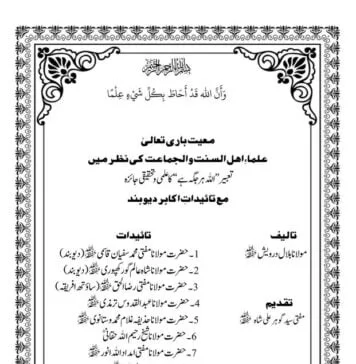 بسم الله الرحمن الرحيم
وَأَنَّ الله قَدْ أَحَاطَ بِكُلِّ شَيْءٍ عِلْمًا
معیت باری تعالیٰ
علماء اهل السنت والجماعت کی نظر میں
تعبیر "اللہ ہر جگہ ہے" کا علمی و تحقیقی جائزہ
مع تائیدات اکابر دیوبند
تالیف
مولانا بلال درویش ﷾
تقدیم
مفتی سید گوہر علی شاہ ﷾
تائیدات
1۔ حضرت مولانا مفتی محمد سفیان قاسمی ﷾ (دیوبند)
2۔ حضرت مولانا شاہ عالم گورکھپوری ﷾ (دیوبند)
3۔ حضرت مولانا مفتی رضاء الحق ﷾ (ساؤتھ افریقہ)
4۔ حضرت مولانا عبدالقدوس ترمذی ﷾
5۔ حضرت مولانا حذیفہ غلام محمد وستانوی ﷾
6۔ حضرت مولانا شیخ رحیم اللہ حقانی
7۔ حضرت مولانا مفتی امداد اللہ انور ﷾